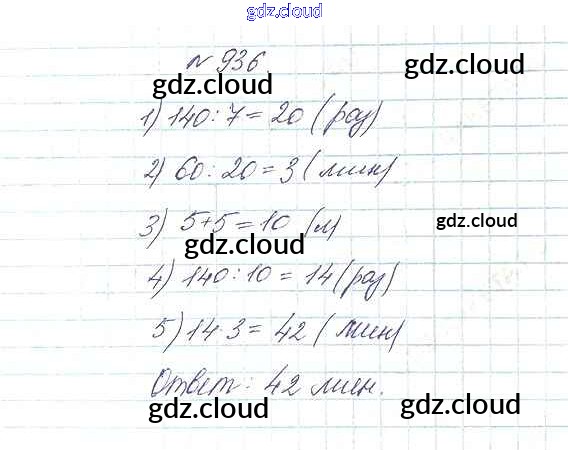 gdz.cloud
№ 936
gdz.cloud
1) 140 : 7 = 20 (раз)
gdz.cloud
2) 60 : 20 = 3 (мин)
3) 5 + 5 = 10 (л)
gdz.cloud
gdz.cloud
4) 140 : 10 = 14 (раз)
5) 14 · 3 = 42 (мин)
gdz.cloud
Ответ: 42 мин.
gdz.cloud
gdz.cloud